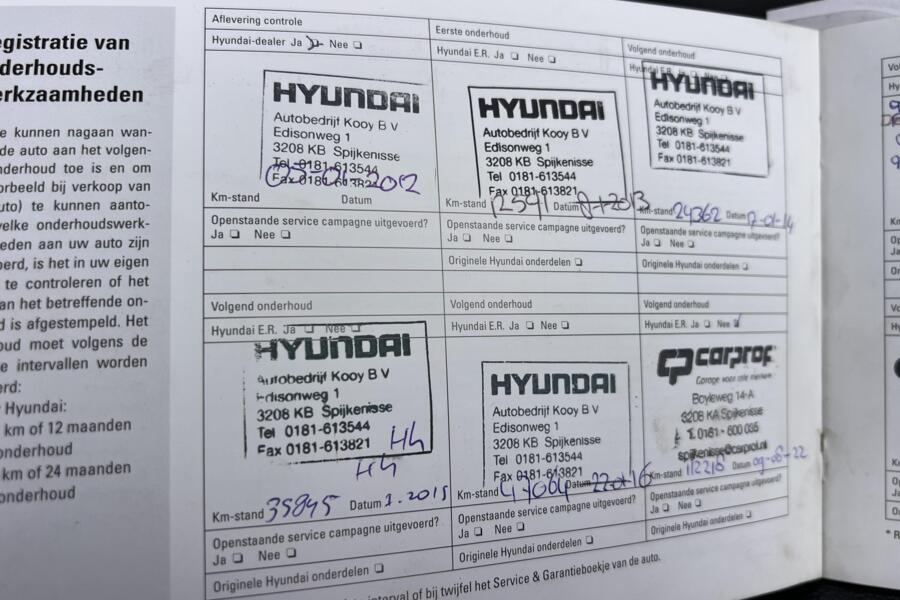 egistratie van
derhouds-
erkzaamheden
e kunnen nagaan wan-
de auto aan het volgen-
nderhoud toe is en om
orbeeld bij verkoop van
uto) te kunnen aanto-
velke onderhoudswerk-
eden aan uw auto zijn
oerd, is het in uw eigen
te controleren of het
an het betreffende on-
d is afgestempeld. Het
oud moet volgens de
e intervallen worden
erd:
Hyundai:
km of 12 maanden
onderhoud
km of 24 maanden
onderhoud
Aflevering controle
Hyundai-dealer Ja Nee
HYUNDAI
Autobedrijf Kooy B V
Edisonweg 1
3208 KB Spijkenisse
Tel 0181-613544
Fax 0181
2012
Km-stand Datum
Openstaande service campagne uitgevoerd?
Ja Nee
Eerste onderhoud
Hyundai E.R. Ja Nee
HYUNDAI
Autobedrijf Kooy B V
Edisonweg 1
3208 KB Spijkenisse
Tel 0181-613544
Fax 0181-613821
Km-stand 12591 Datum 8-1-2013
Openstaande service campagne uitgevoerd?
Ja Nee
Originele Hyundai onderdelen
Volgend onderhoud
HYUNDAI
Autobedrijf Kooy B V
Edisonweg 1
3208 KB Spijkenisse
Tel 0181-613544
Fax 0181-613821
Km-stand 24362 Datum 17-01-14
Openstaande service campagne uitgevoerd?
Ja Nee
Originele Hyundai onderdelen
Volgend onderhoud
Hyundai E.R. Ja Nee
HYUNDAI
Autobedrijf Kooy B V
Edisonweg 1
3208 KB Spijkenisse
Tel 0181-613544
Fax 0181-613821
Km-stand 35845 Datum 1.2015
Openstaande service campagne uitgevoerd?
Ja Nee
Originele Hyundai onderdelen
Volgend onderhoud
Hyundai E.R. Ja Nee
HYUNDAI
Autobedrijf Kooy B V
Edisonweg 1
3208 KB Spijkenisse
Tel 0181-613544
Fax 0181-613821
Km-stand 47064 Datum 22-01-16
Openstaande service campagne uitgevoerd?
Ja Nee
Originele Hyundai onderdelen
Volgend onderhoud
Hyundai E.R. Ja Nee
carprof
Garage voor alle merken
Boyleweg 14-A
3208 KA Spijkenisse
T. 0181 - 600 035
spijkenisse@carprof.nl
Km-stand 112218 Datum 09-08-22
Openstaande service campagne uitgevoerd?
Ja Nee
Originele Hyundai onderdelen
interval of bij twijfel het Service & Garantieboekje van de auto.